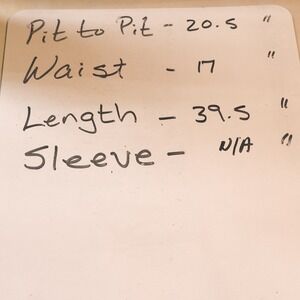 Pit to Pit - 20.5 "
Waist - 17 "
Length - 39.5 "
Sleeve - N/A "